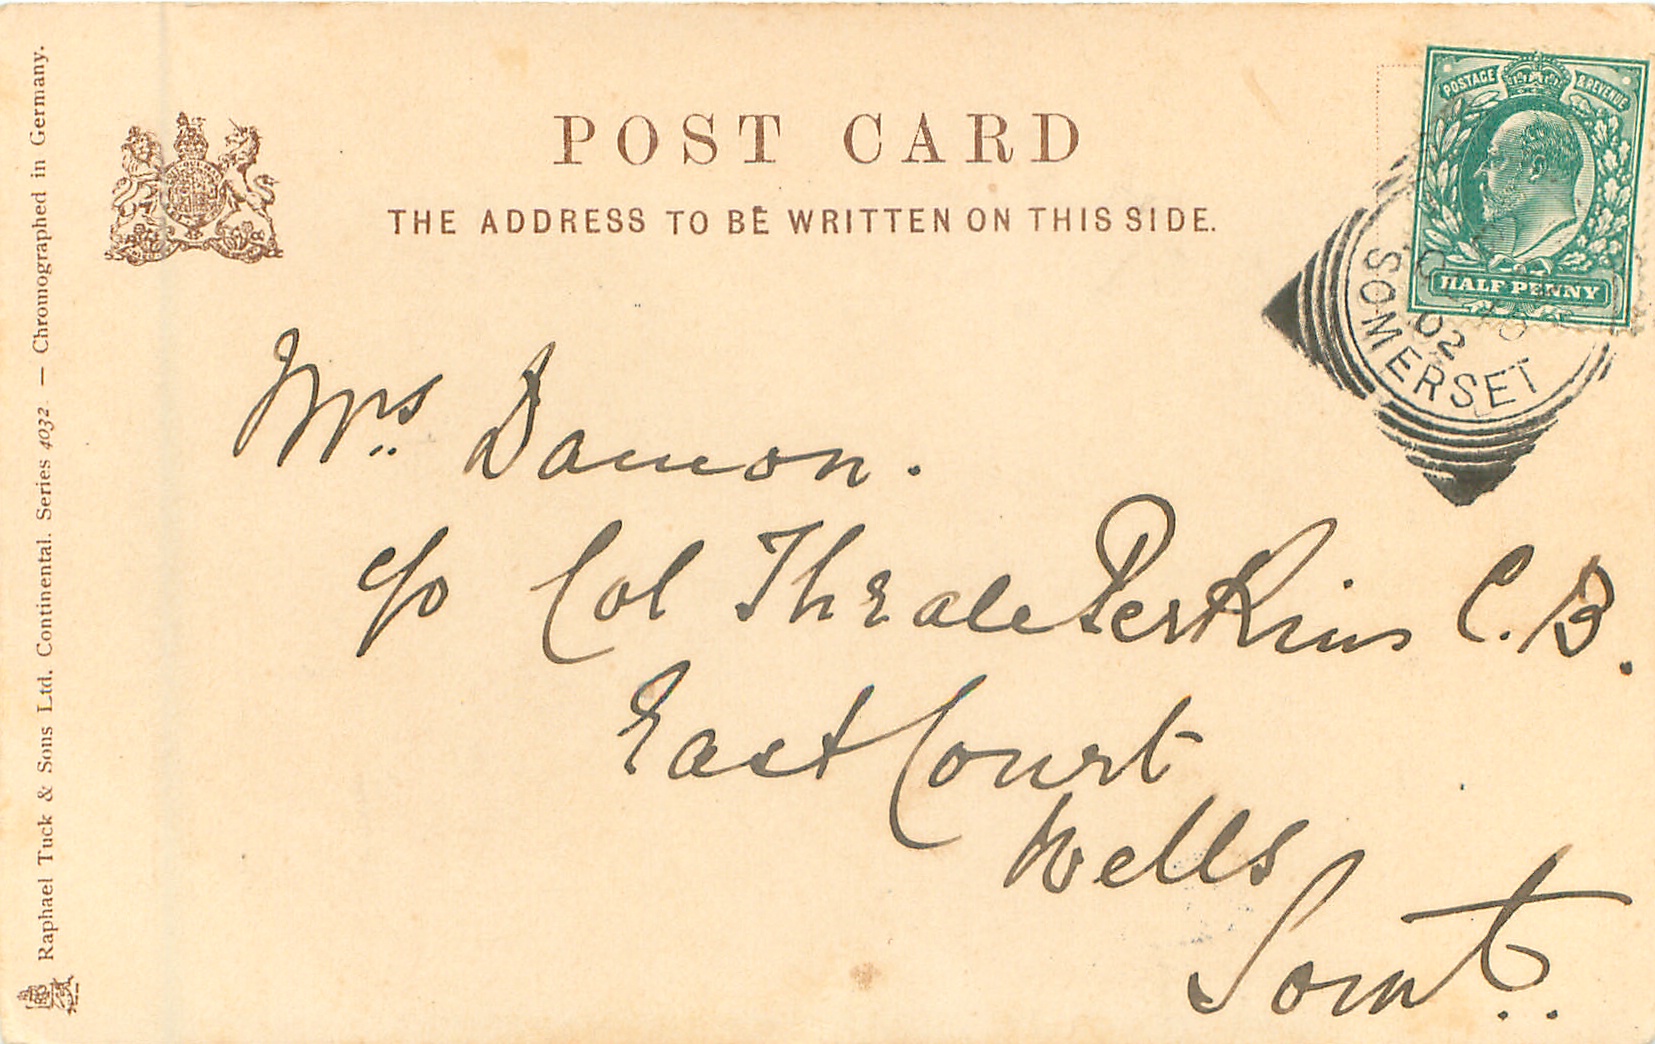 POST CARD
THE ADDRESS TO BE WRITTEN ON THIS SIDE.
Raphael Tuck & Sons Ltd. Continental. Series 4032 — Chromographed in Germany.
POSTAGE & REVENUE
HALF PENNY
02
SOMERSET
Mrs. Damon.
c/o Col Thrale Perkins C.B.
East Court
Wells
Somt.